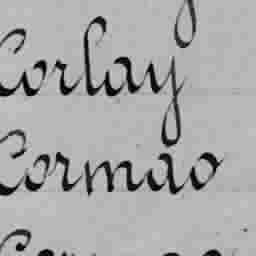 Corlay
Cormao